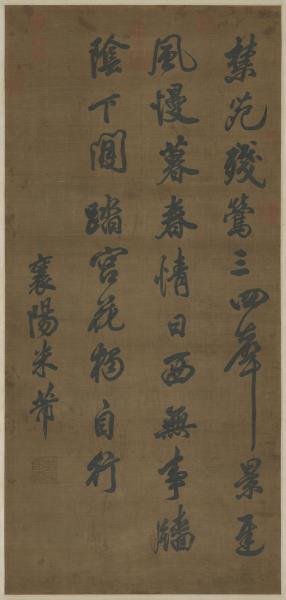 禁苑殘鶯三四聲景遲
風慢暮春情日西無事牆
陰下閒踏宮花獨自行
襄陽米芾